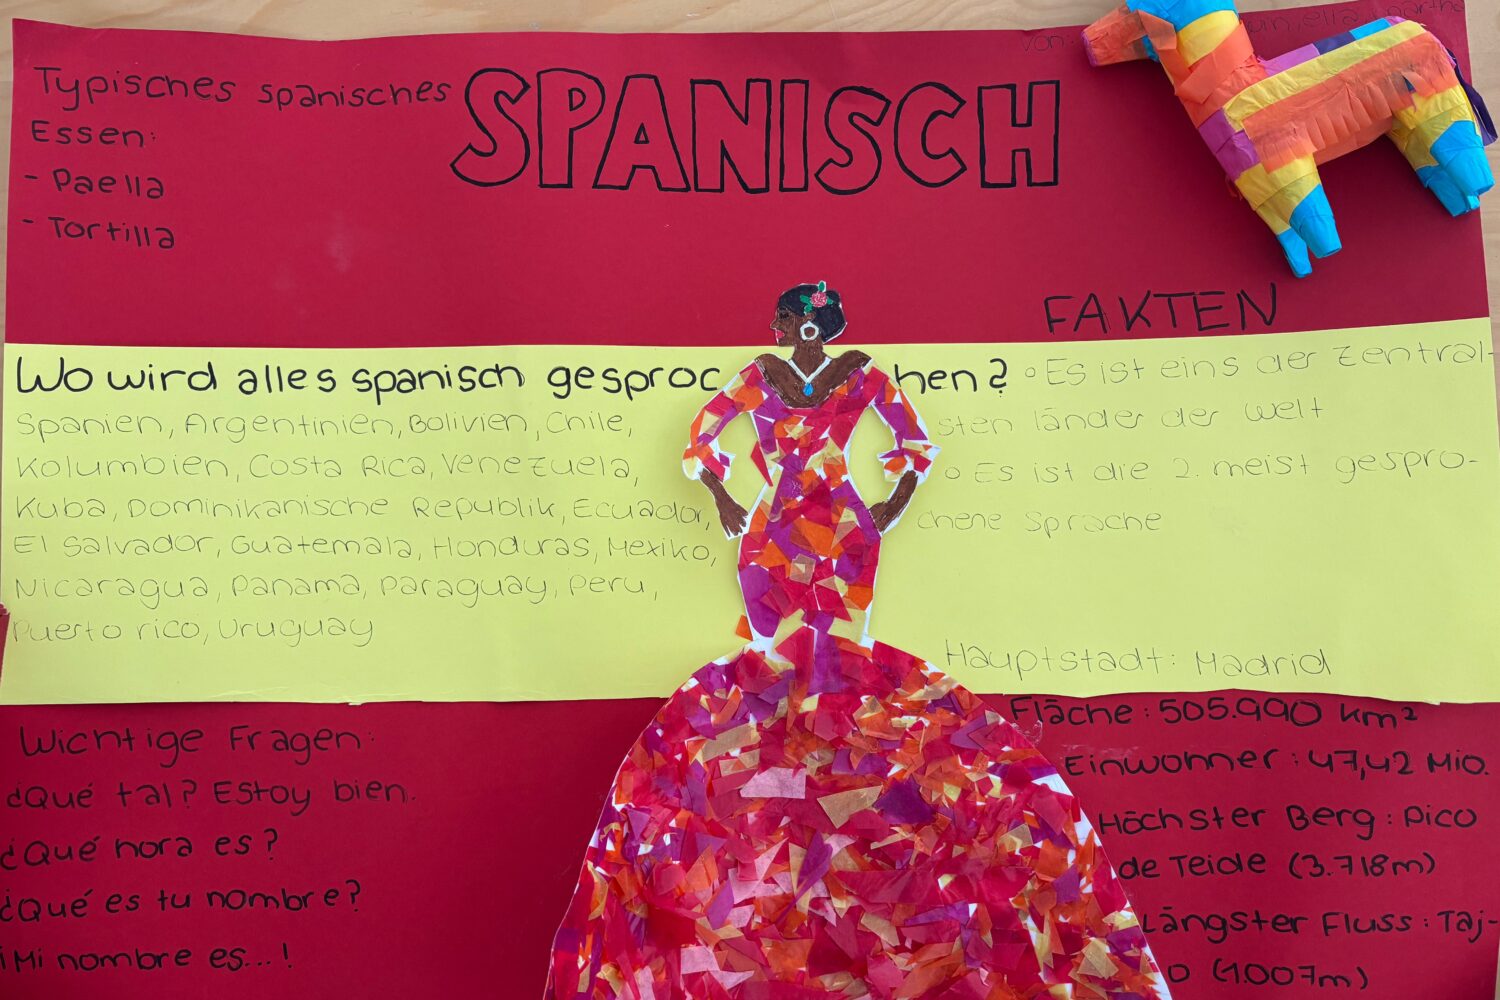 Typisches spanisches
Essen:
- Paella
- Tortilla
SPANISCH
von:
FAKTEN
Wo wird alles spanisch gesproc hen?
Spanien, Argentinien, Bolivien, Chile,
Kolumbien, Costa Rica, Venezuela,
Kuba, Dominikanische Republik, Ecuador,
El Salvador, Guatemala, Honduras, Mexiko,
Nicaragua, Panama, Paraguay, Peru,
Puerto rico, Uruguay
° Es ist eins der Zentral-
sten länder der Welt
° Es ist die 2. meist gespro-
chene Sprache
Hauptstadt: Madrid
Fläche: 505.990 km²
Einwohner: 47,42 Mio.
Höchster Berg: Pico
de Teide (3.718m)
Längster Fluss: Taj-
o (1.007m)
Wichtige Fragen:
¿Qué tal? Estoy bien.
¿Qué hora es?
¿Qué es tu nombre?
¡Mi nombre es...!